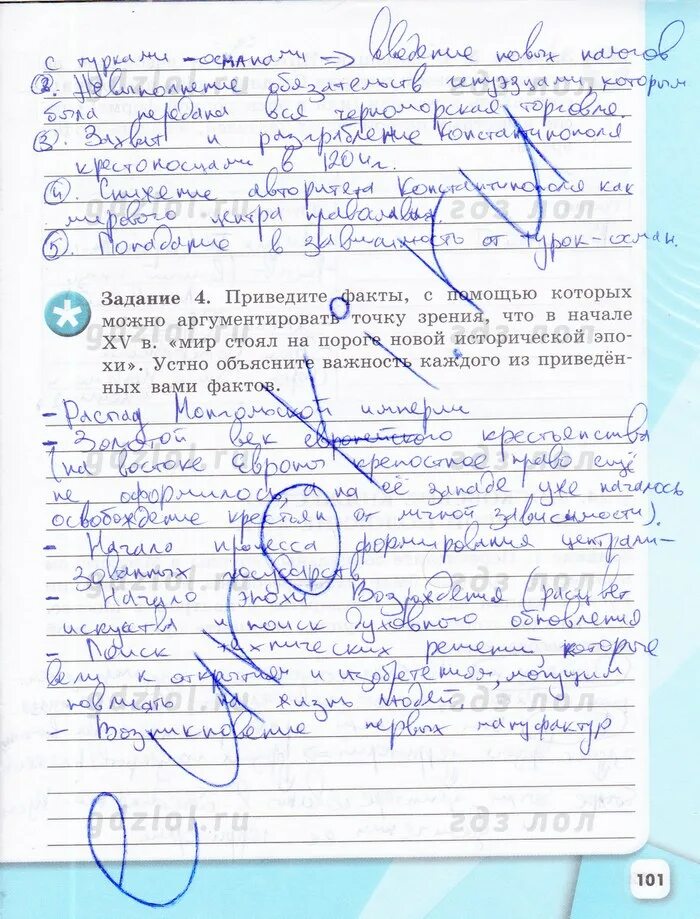 с турками-османами => введение новых налогов
2. Невыполнение обязательств генуэзцами, которым
была передана вся черноморская торговля.
3. Захват и разграбление Константинополя
крестоносцами в 1204г.
4. Снижение авторитета Константинополя как
мирового центра православия.
5. Попадание в зависимость от турок-осман.
Задание 4. Приведите факты, с помощью которых
можно аргументировать точку зрения, что в начале
XV в. «мир стоял на пороге новой исторической эпо-
хи». Устно объясните важность каждого из приведён-
ных вами фактов.
- Распад Монгольской империи
- Золотой век европейского крестьянства
(на востоке Европы крепостное право ещё
не оформилось, а на её западе уже началось
освобождение крестьян от личной зависимости).
- Начало процесса формирования централи-
зованных государств
- Начало эпохи Возрождения (расцвет
искусства и поиск духовного обновления
- Поиск технических решений, которые
вели к открытиям и изобретениям, могущим
повлиять на жизнь людей
- Возникновение первых мануфактур
gdzlol.ru гдз лол
101